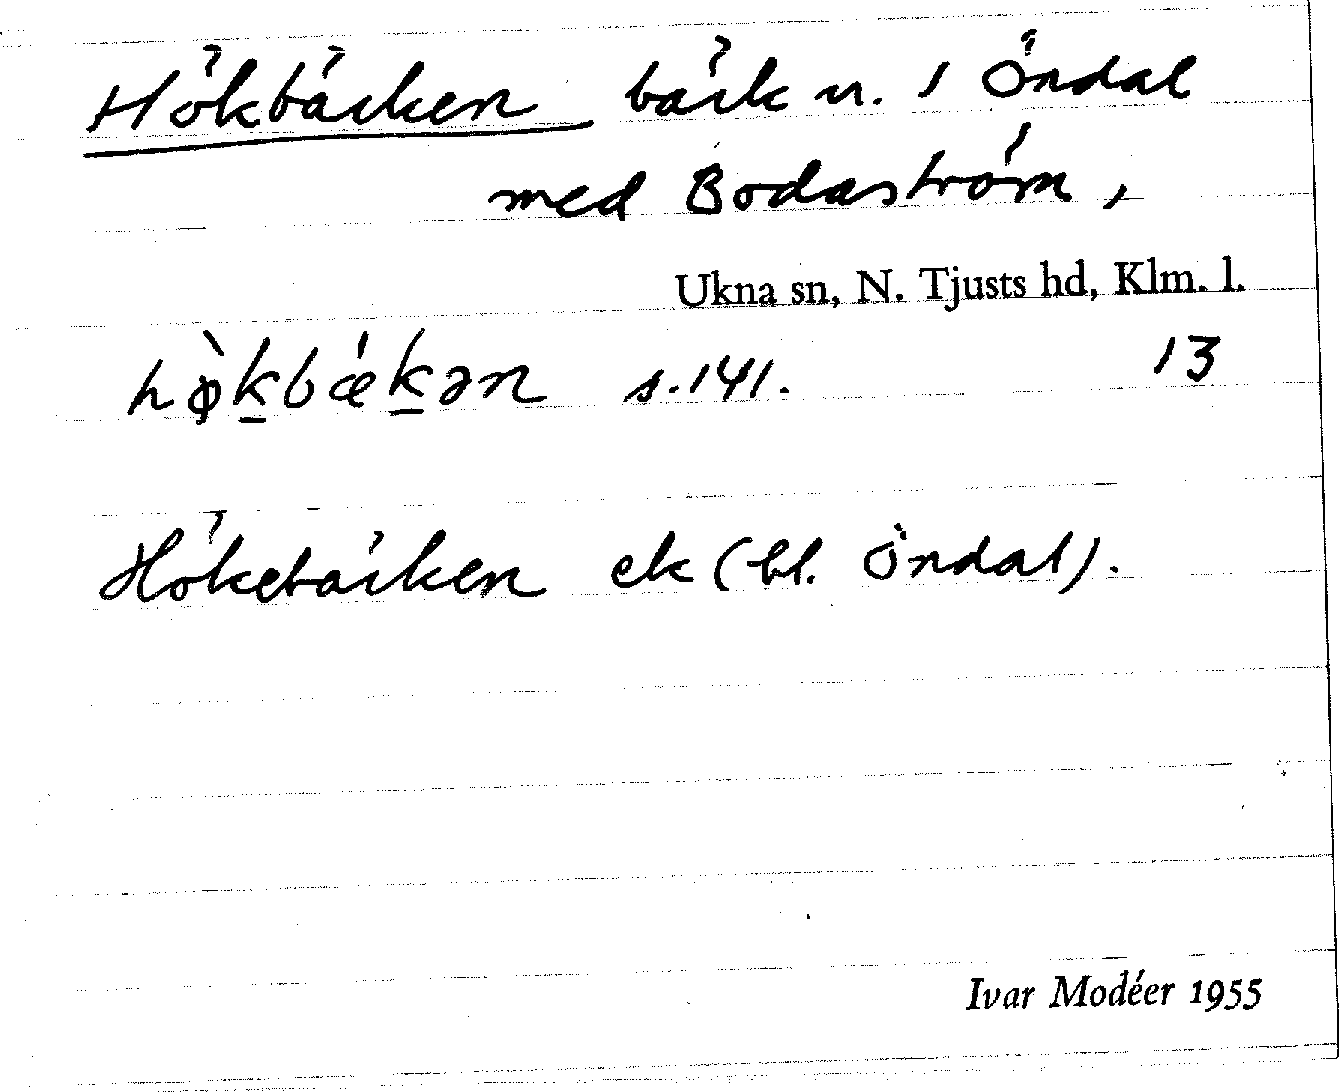 Hökbäcken bäck n. 1 Öndal
med Bodaström,
Ukna sn, N. Tjusts hd, Klm. l.
hø̀kbǽkən s. 141. 13
Hökebäcken ek (bl. Öndal).
Ivar Modéer 1955